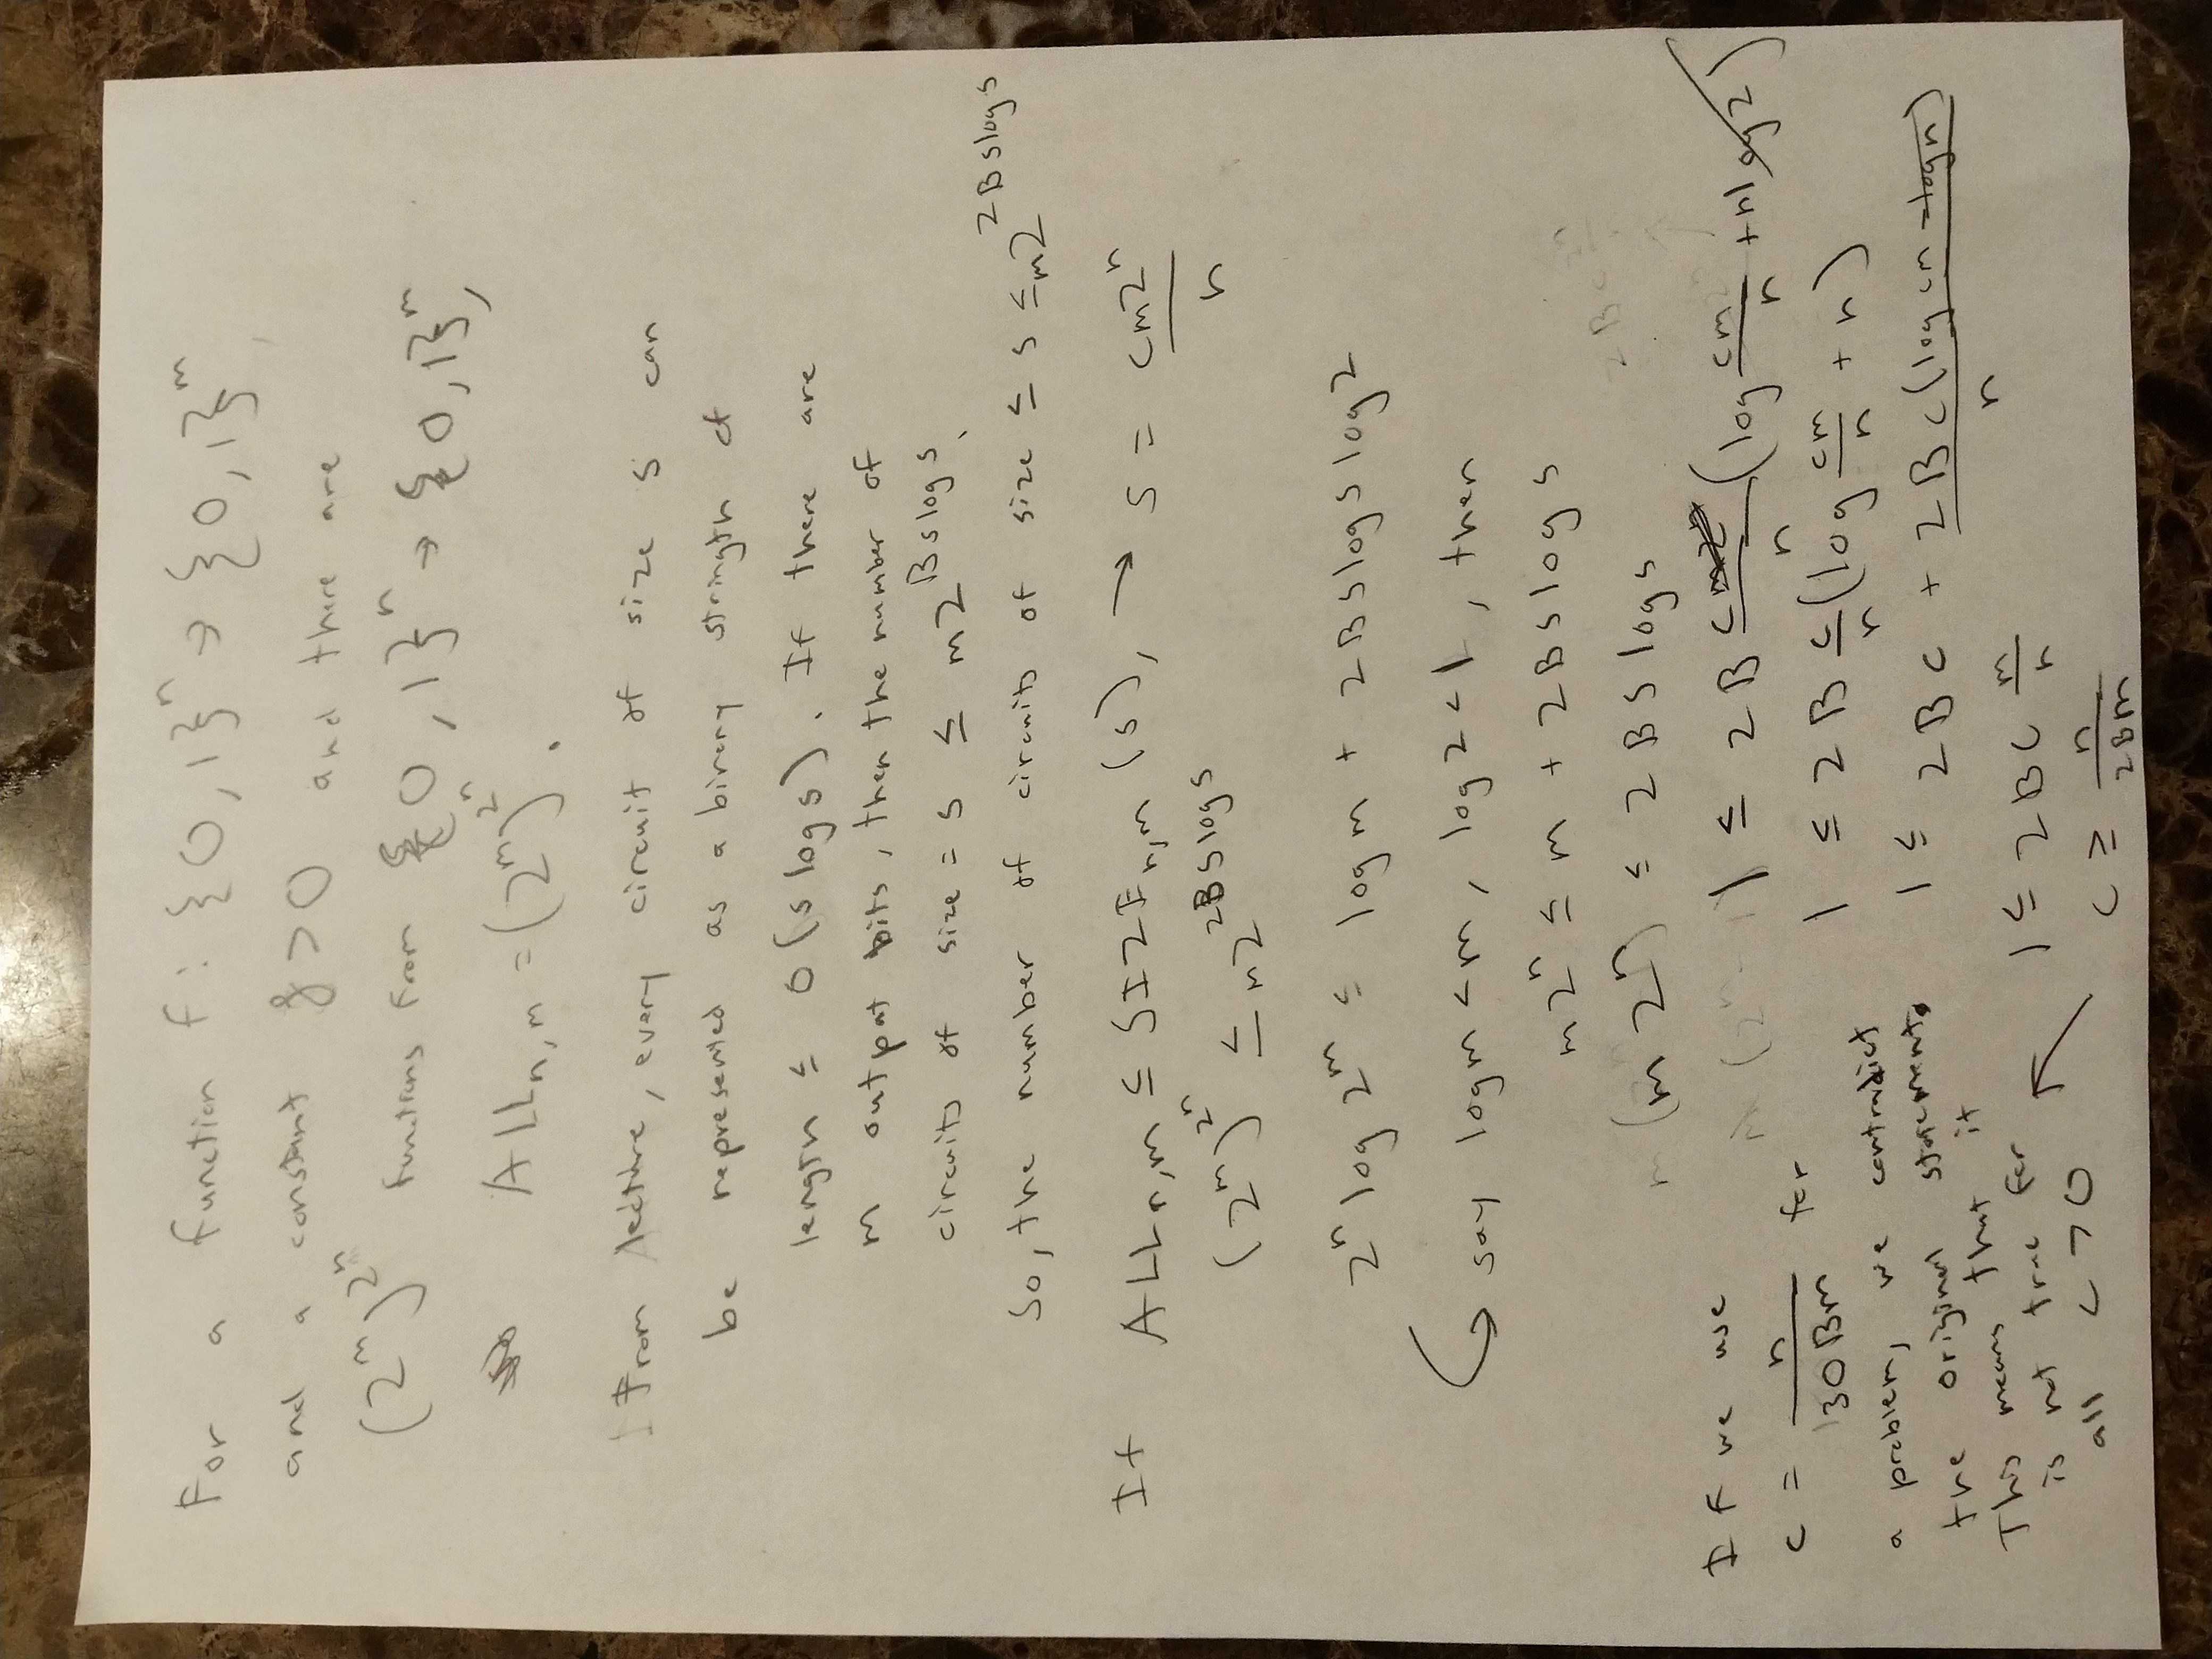 For a function f: {0,1}^n → {0,1}^m,
and a constant δ > 0 and there are
(2^m)^2^n functions from {0,1}^n → {0,1}^m,
ALL_n,m = (2^m)^2^n.
From lecture, every circuit of size s can
be represented as a binary stringth of
length ≤ O(s log s). If there are
m output bits, then the number of
circuits of size = s ≤ m2^Bslogs.
So, the number of circuits of size ≤ s ≤ m2^2Bslogs
If ALL_n,m ≤ SIZE_n,m (s), → s = cm2^n/n
(2^m)^2^n ≤ m2^2Bslogs
2^n log 2^m ≤ log m + 2Bslogs log 2
say log m < m, log 2 < 1, then
m2^n ≤ m + 2Bslogs
(m2^n) ≤ 2Bslogs
1 ≤ 2B c/n (log cm/n + n log 2)
1 ≤ 2B c/n (log cm/n + n)
1 ≤ 2Bc + 2Bc(log cm - log n)/n
1 ≤ 2Bc m/n
c ≥ n/2Bm
If we use
c = n/130Bm for
a problem, we contradict
the original statement.
This means that it
is not true for
all c > 0